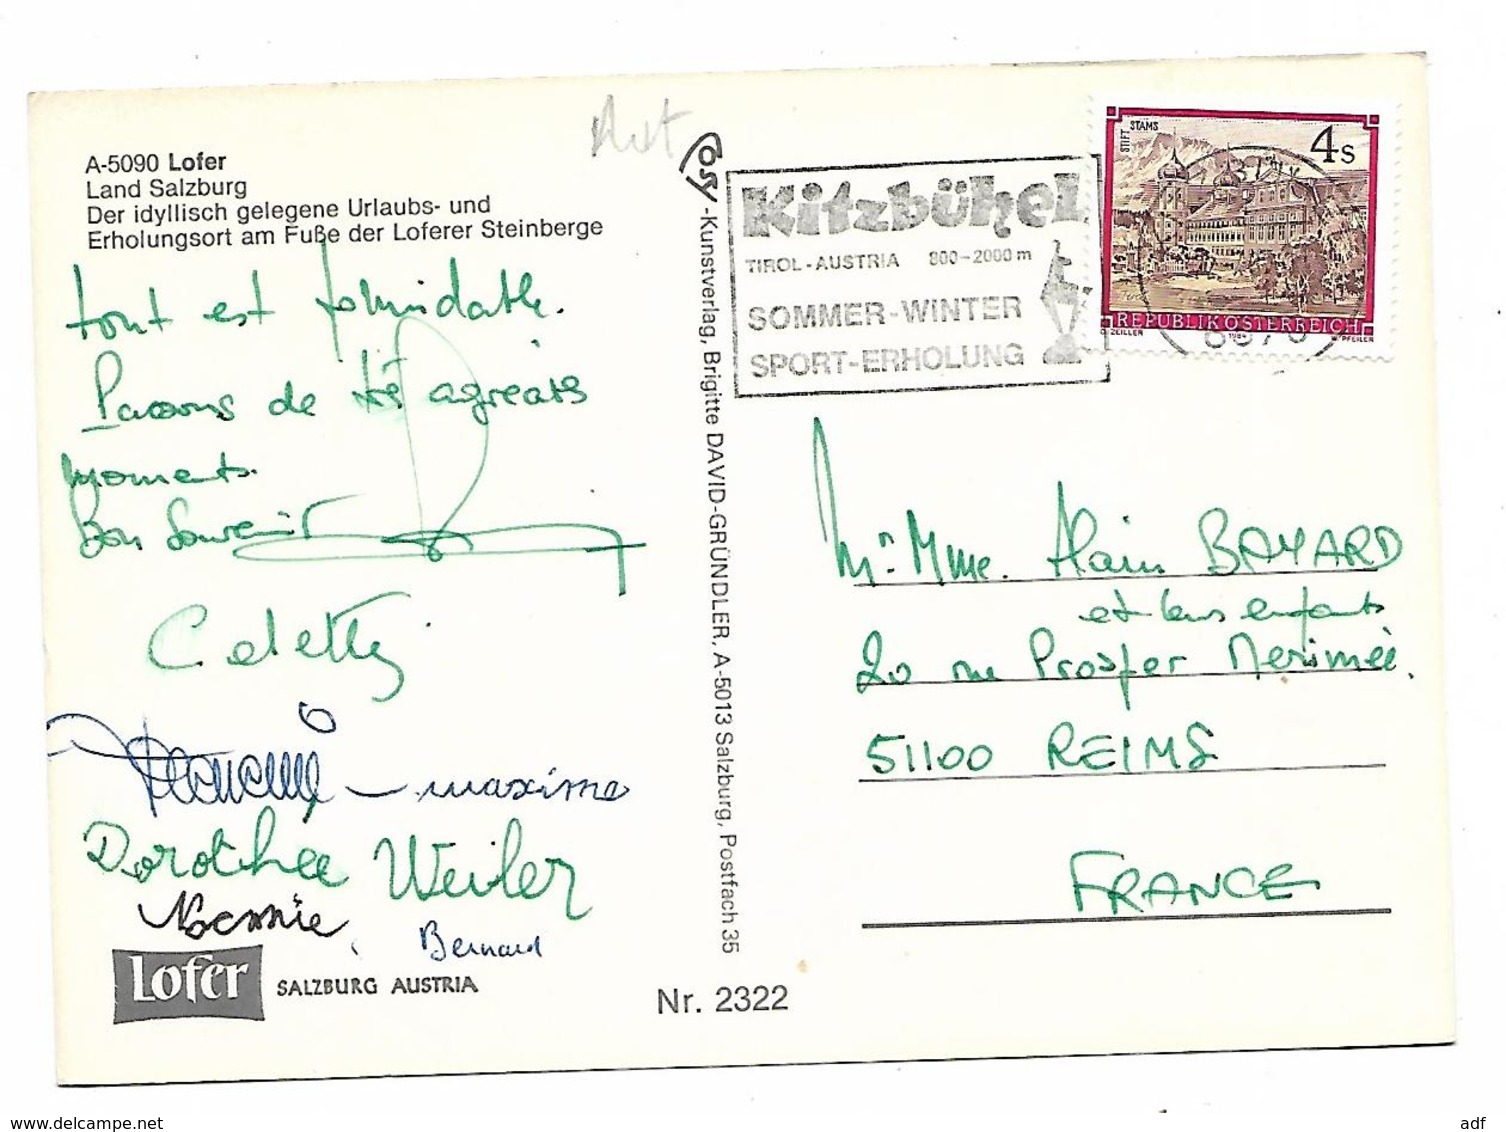 A-5090 Lofer
Land Salzburg
Der idyllisch gelegene Urlaubs- und
Erholungsort am Fuße der Loferer Steinberge
tout est formidable.
Passons de très agréables
moments.
Bon Souvenir
Colette
maxime
Dorothee Weiler
Noemie, Bernard
Lofer SALZBURG AUSTRIA
Nr. 2322
Cosy-Kunstverlag, Brigitte DAVID-GRÜNDLER, A-5013 Salzburg, Postfach 35
Kitzbühel
TIROL-AUSTRIA 800-2000 m
SOMMER-WINTER
SPORT-ERHOLUNG
STIFT STAMS
4s
REPUBLIK ÖSTERREICH
O. ZEILLER 1984 W. PFEILER
6370
Mr. Mme. Alain BAYARD
et leurs enfants
20 rue Prosper Merimée.
51100 REIMS
FRANCE
www.delcampe.net
adf